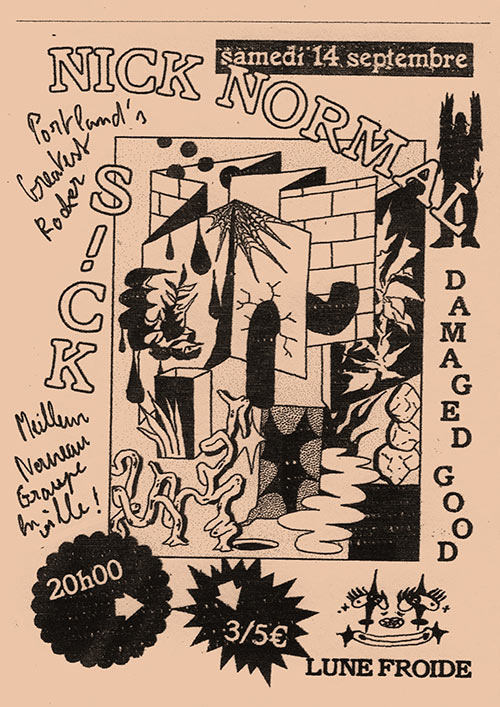 samedi 14 septembre
NICK NORMAL
Portland's
Greatest
Rocker
S!CK
DAMAGED GOOD
Meilleur
Nouveau
Groupe
in ville!
20h00
3/5€
LUNE FROIDE